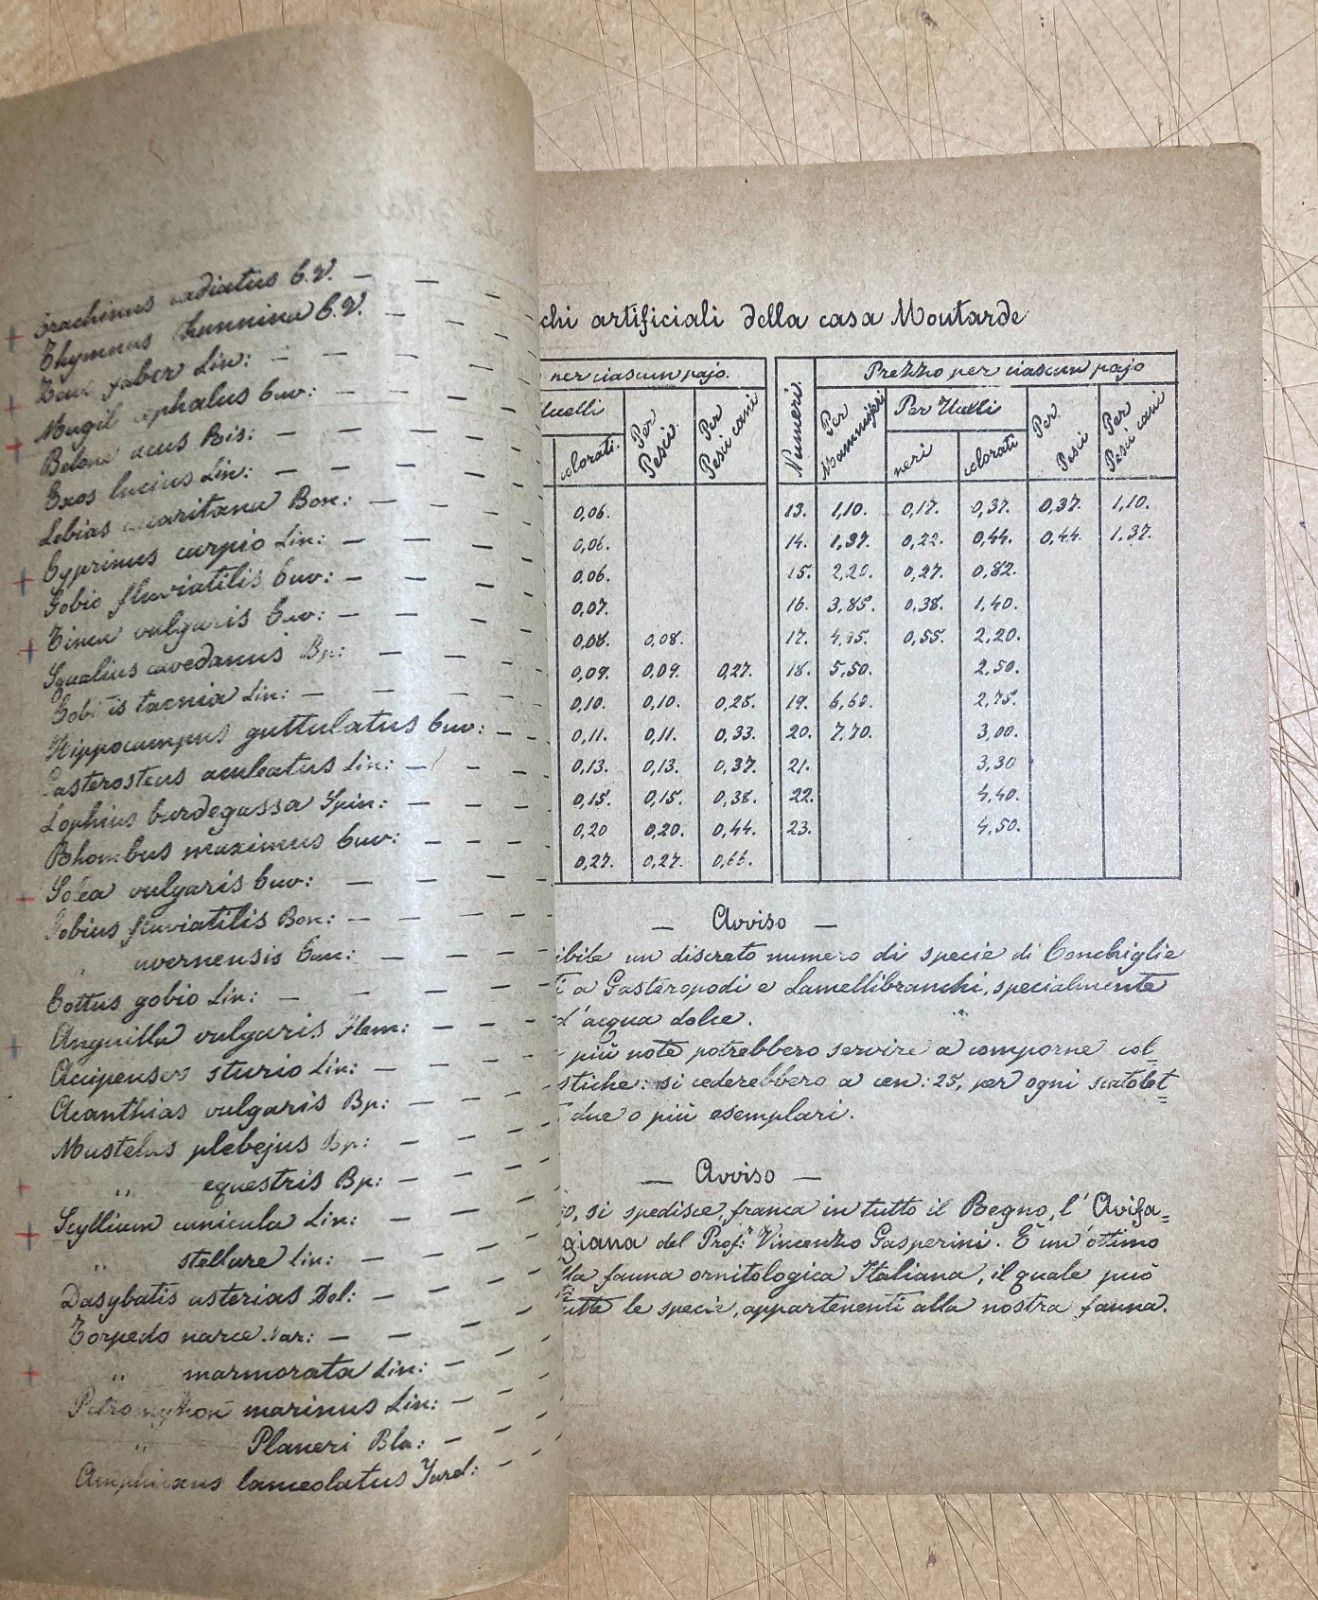 Trachinus radiatus C.V. — —
Thynnus thunnina C.V. — —
Zeus faber Lin: — — —
Mugil cephalus Cuv: — — —
Belone acus Ris: — — —
Exos lucius Lin: — — —
Lebias Bon: — — —
Cyprinus carpio Lin: — — —
Gobio fluviatilis Cuv: — — —
Tinca vulgaris Cuv: — — —
Squalius cavedanus Bp: — — —
Cobitis taenia Lin: — — —
Hippocampus guttulatus Cuv: — —
Gasterosteus aculeatus Lin: — — —
Lophius burdegassa Spin: — — —
Rhombus maximus Cuv: — — —
Solea vulgaris Cuv: — — —
Gobius fluviatilis Bon: — — —
" avernensis Can: — — —
Cottus gobio Lin: — — —
Anguilla vulgaris Flem: — — —
Accipenser sturio Lin: — — —
Acanthias vulgaris Bp: — — —
Mustelus plebejus Bp: — — —
" equestris Bp: — — —
Scyllium canicula Lin: — — —
" stellare Lin: — — —
Dasybatis asterias Del: — — —
Torpedo narce — — —
" marmorata Lin: — — —
Petromyhon marinus Lin: — — —
" Planeri Bla: — — —
Amphioxus lanceolatus Yarel: — —
chi artificiali della casa Moutarde
per ciascun pajo. Numeri. Prezzo per ciascun pajo
Uccelli Per Pesci. Per Pesci cani Per Mammiferi Per Uccelli Per Pesci Per Pesci cani
colorati. neri colorati
0,06. 13. 1,10. 0,17. 0,37. 0,37. 1,10.
0,06. 14. 1,37. 0,22. 0,44. 0,44. 1,37.
0,06. 15. 2,20. 0,27. 0,82.
0,07. 16. 3,85. 0,38. 1,40.
0,08. 0,08. 17. 4,95. 0,55. 2,20.
0,09. 0,09. 0,27. 18. 5,50. 2,50.
0,10. 0,10. 0,28. 19. 6,60. 2,75.
0,11. 0,11. 0,33. 20. 7,70. 3,00.
0,13. 0,13. 0,37. 21. 3,30
0,15. 0,15. 0,38. 22. 4,40.
0,20 0,20. 0,44. 23. 4,50.
0,27. 0,27. 0,66.
— Avviso —
ibile un discreto numero di specie di Conchiglie
ti a Gasteropodi e Lamellibranchi, specialmente
d'acqua dolce.
più note potrebbero servire a comporne col=
stiche: si cederebbero a cen: 25, per ogni scatolet=
due o più esemplari.
— Avviso —
so, si spedisce, franca in tutto il Regno, l'Avifa=
giana del Prof:r Vincenzo Gasperini. È un'ottimo
lla fauna ornitologica Italiana, il quale può
tutte le specie, appartenenti alla nostra fauna.